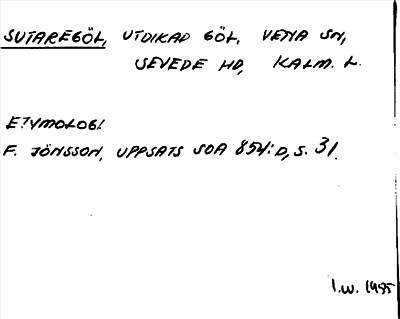 SUTAREGÖL, UTDIKAD GÖL, VENA SN,
SEVEDE HD, KALM. L.
ETYMOLOGI
F. JÖNSSON, UPPSATS SOA 854:D, S. 31.
I.W. 1985